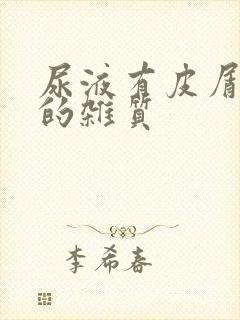 尿液有皮屑
的雜質
李希春